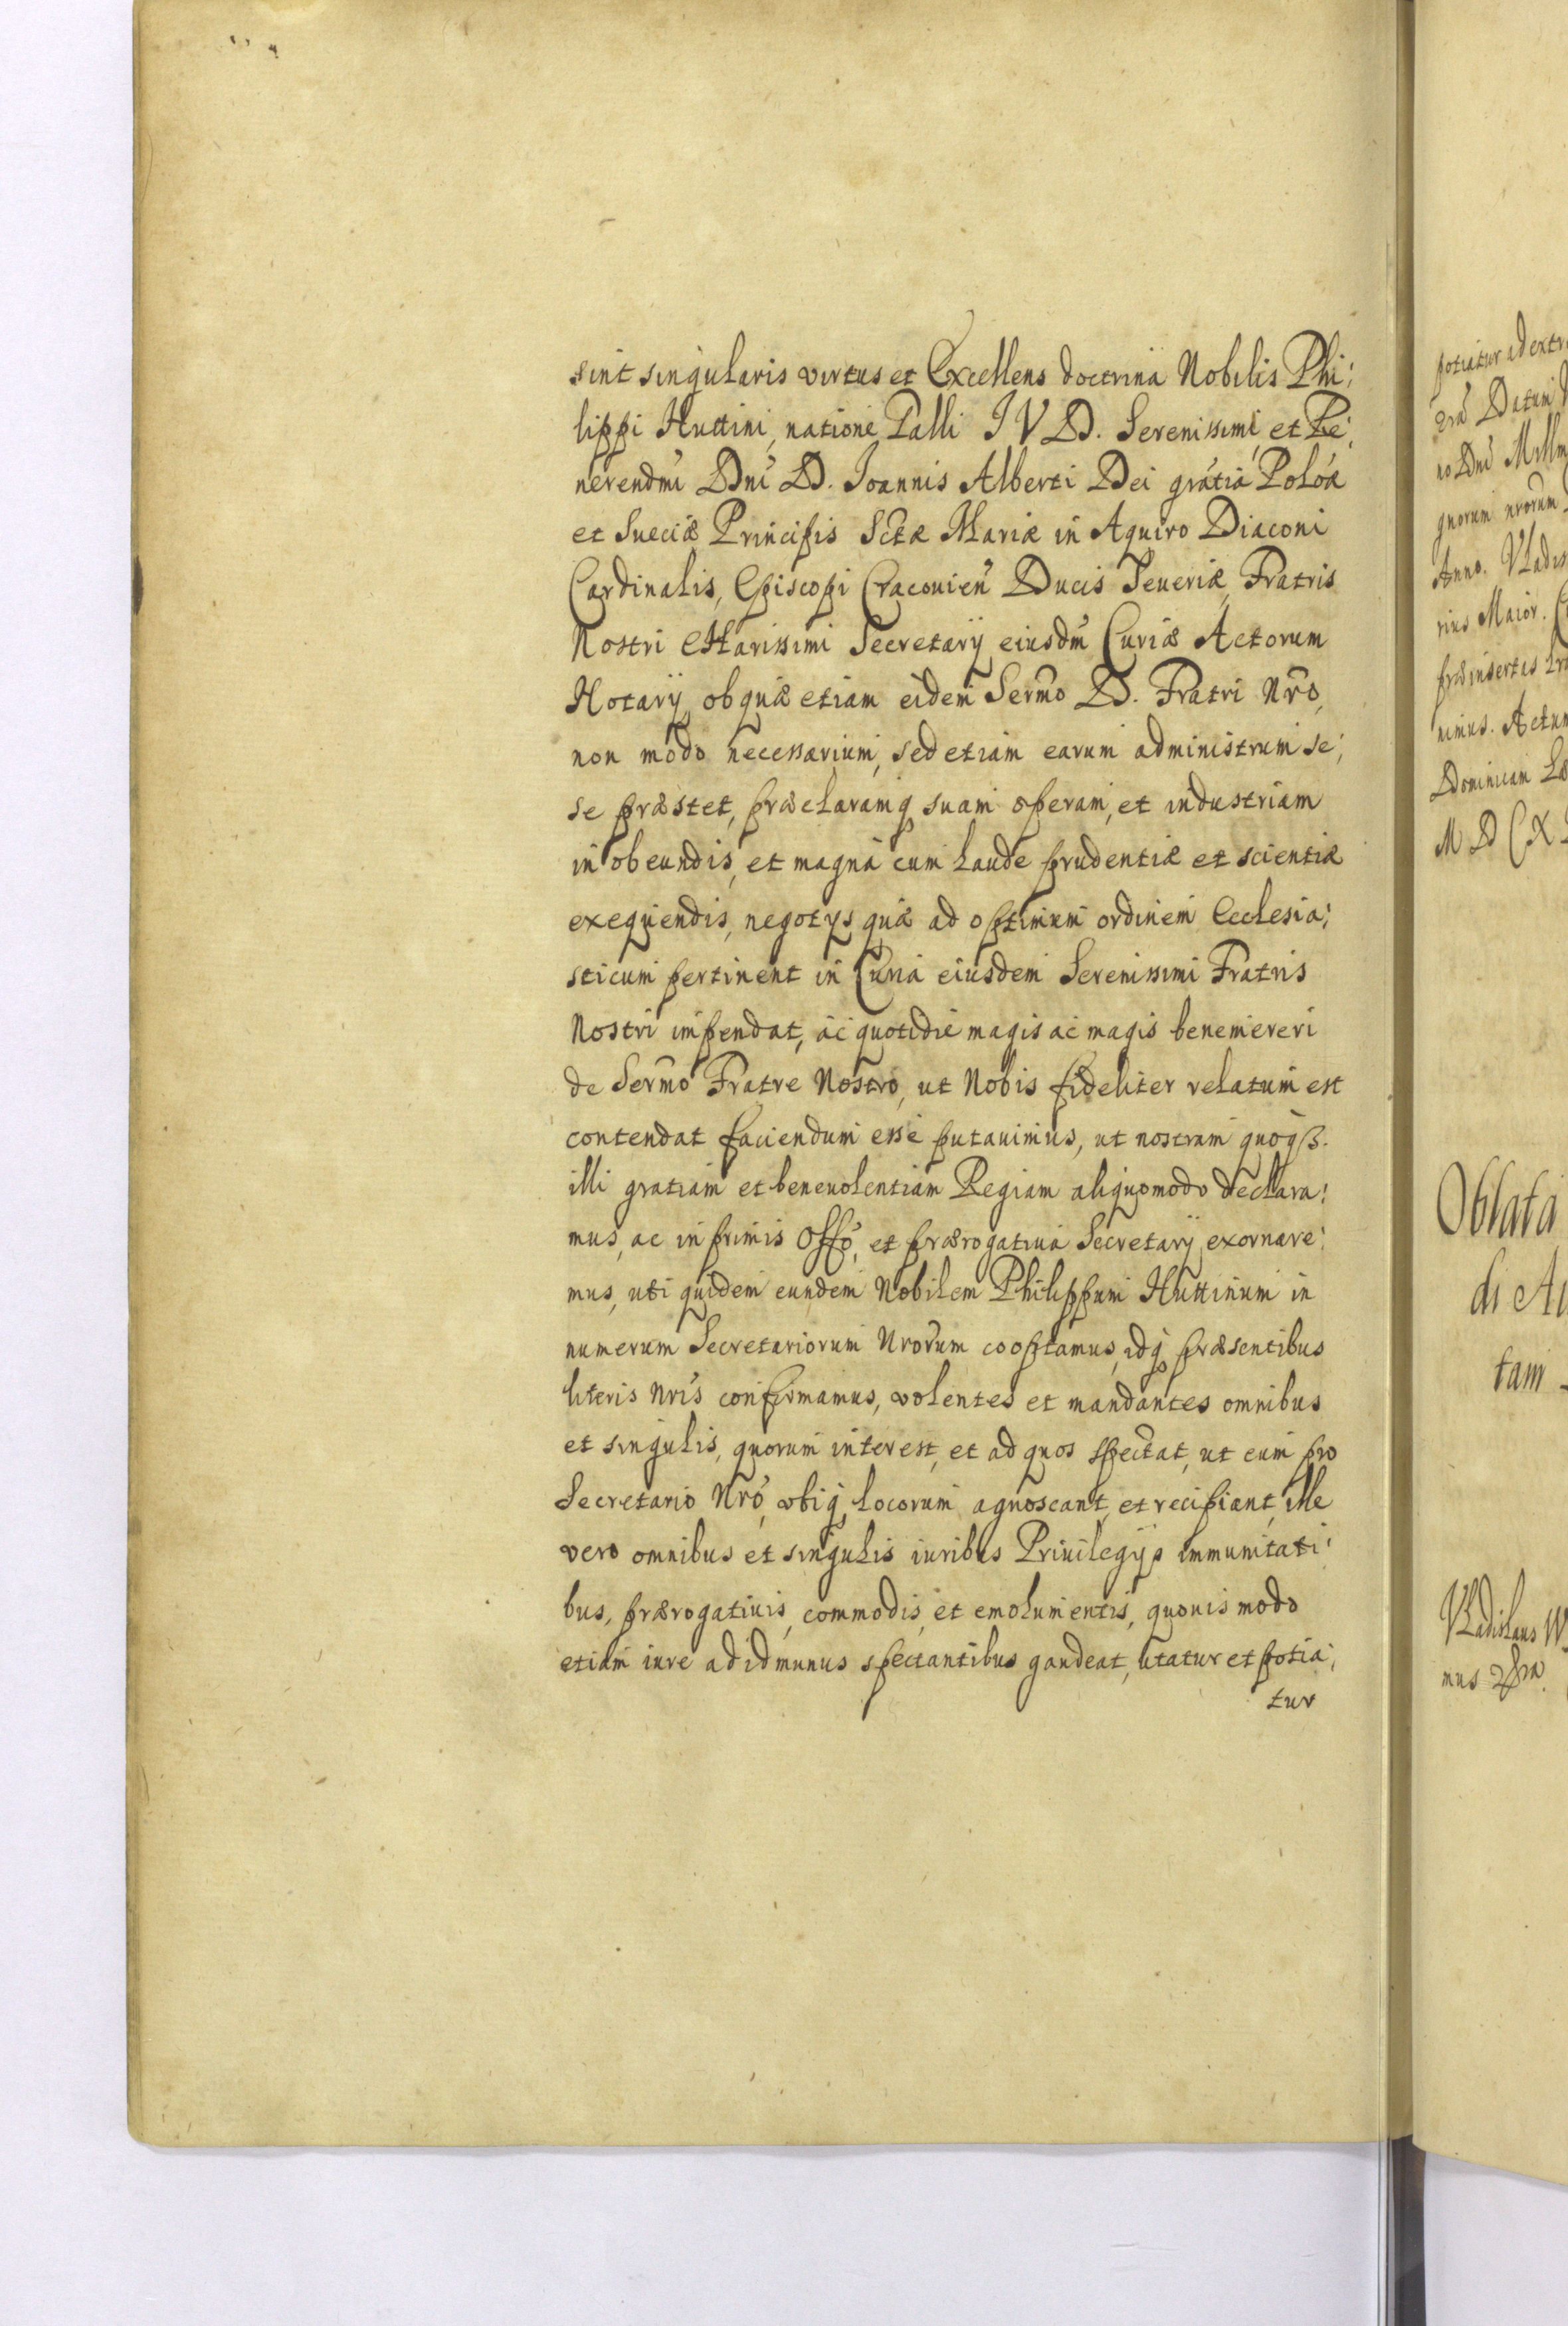 sint singularis virtus et Excellens doctrina Nobilis Phi:
lippi Huttini, natione Galli I V D. Serenissimi, et Re:
verendmi Dni D. Ioannis Alberti Dei gratia Poloa
et Sueciæ Principis Sctæ Mariæ in Aquiro Diaconi
Cardinalis, Episcopi Cracouien Ducis Seueriæ, Fratris
Nostri Charissimi Secretarij eiusdm Curiæ Actorum
Notarij, ob quæ etiam eidem Sermo D. Fratri Nro,
non modo necessarium, sed etiam earum administrum se:
se præstet, præclaramq suam operam, et industriam
in obeundis, et magna cum laude prudentiæ et scientiæ
exequendis, negotys quæ ad optimum ordinem Ecclesia:
sticum pertinent in Curia eiusdem Serenissimi Fratris
Nostri impendat, ac quotidie magis ac magis benemereri
de Sermo Fratre Nostro, ut Nobis fideliter relatum est
contendat faciendum esse putauimus, ut nostram quoqß.
illi gratiam et beneuolentiam Regiam aliquomodo declara:
mus, ac in primis Offo, et prærogatiua Secretarij exornare:
mus, uti quidem eundem Nobilem Philippum Huttinum in
numerum Secretariorum Nrorum cooptamus, idq præsentibus
literis Nris confirmamus, volentes et mandantes omnibus
et singulis, quorum interest, et ad quos spectat, ut eum pro
Secretario Nro, vbiq locorum agnoscant, et recipiant, ille
vero omnibus et singulis iuribus Priuilegijs immunitati:
bus, prærogatiuis, commodis, et emolumentis, quouis modo
etiam iure ad id munus spectantibus gaudeat, utatur et potia:
tur
potiatur ad extr
Datum
no Dni Millm
gnorum nrorum
Anno. Vladis
rius Maior.
præinsertis
nimus. Actum
Dominicam
M D C X
Oblata
di
tam
Vladislaus
mus